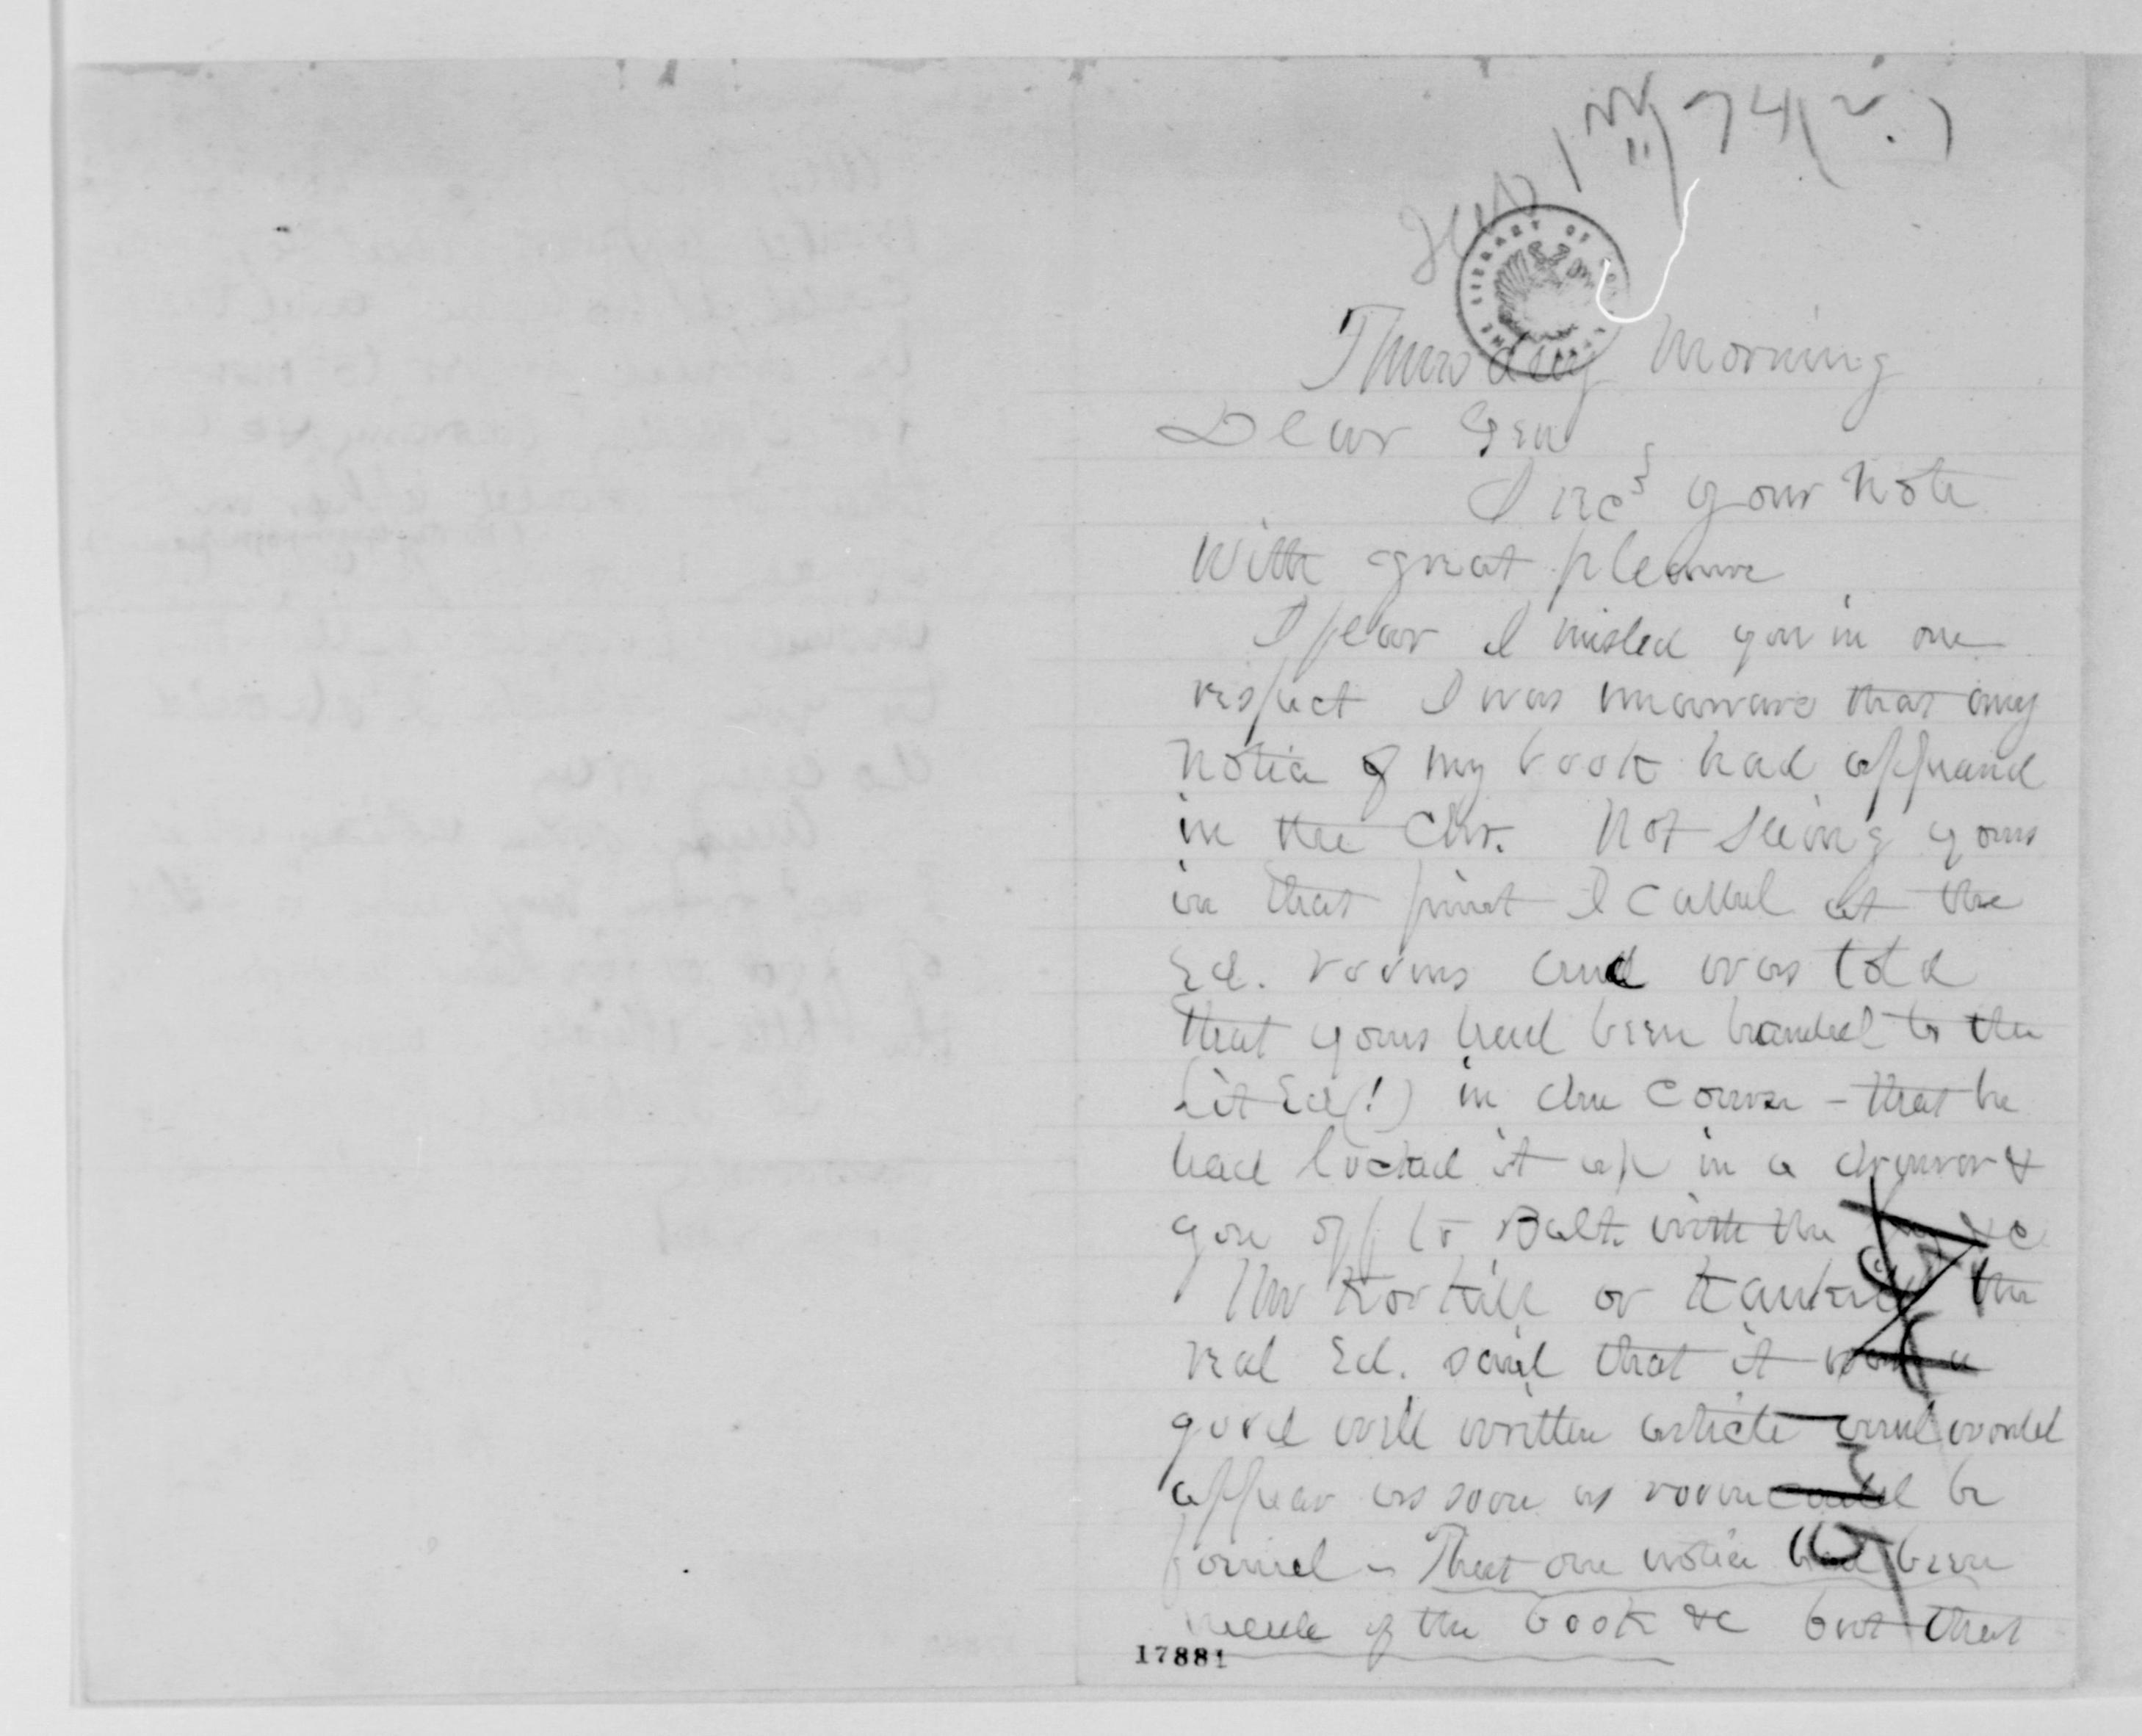 74(?)
THE LIBRARY OF
Thursday Morning
Dear Gen
I recd your note
with great pleasure
I fear I misled you in one
respect I was unaware that any
notice of my book had appeared
in the Chr. Not seeing yours
in that print I called at the
Ed. rooms and was told
that yours had been handed to the
Lit Ed (!) in due course - that he
had locked it up in a drawer &
gone off to Balt. with the &c
Mr Korkill or the
real Ed. said that it was a
good well written article and would
appear as soon as room could be
found - That one notice had been
made of the book &c but that
17881